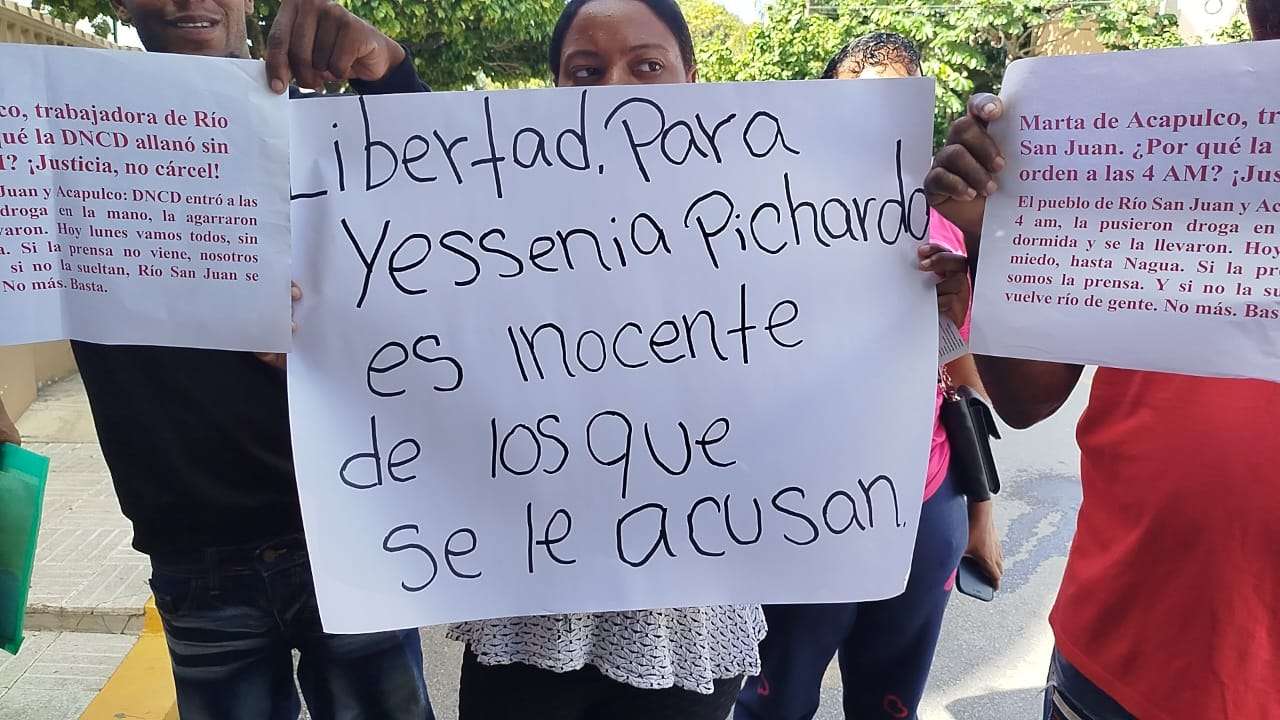 co, trabajadora de Río
qué la DNCD allanó sin
? ¡Justicia, no cárcel!
Juan y Acapulco: DNCD entró a las
droga en la mano, la agarraron
varon. Hoy lunes vamos todos, sin
a. Si la prensa no viene, nosotros
si no la sueltan, Río San Juan se
No más. Basta.
Libertad. Para
Yessenia Pichardo
es inocente
de los que
se le acusan.
Marta de Acapulco, tr
San Juan. ¿Por qué la
orden a las 4 AM? ¡Jus
El pueblo de Río San Juan y Ac
4 am, la pusieron droga en
dormida y se la llevaron. Hoy
miedo, hasta Nagua. Si la pr
somos la prensa. Y si no la su
vuelve río de gente. No más. Bas